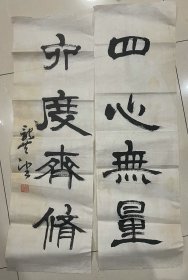 四心無量
六度齊脩